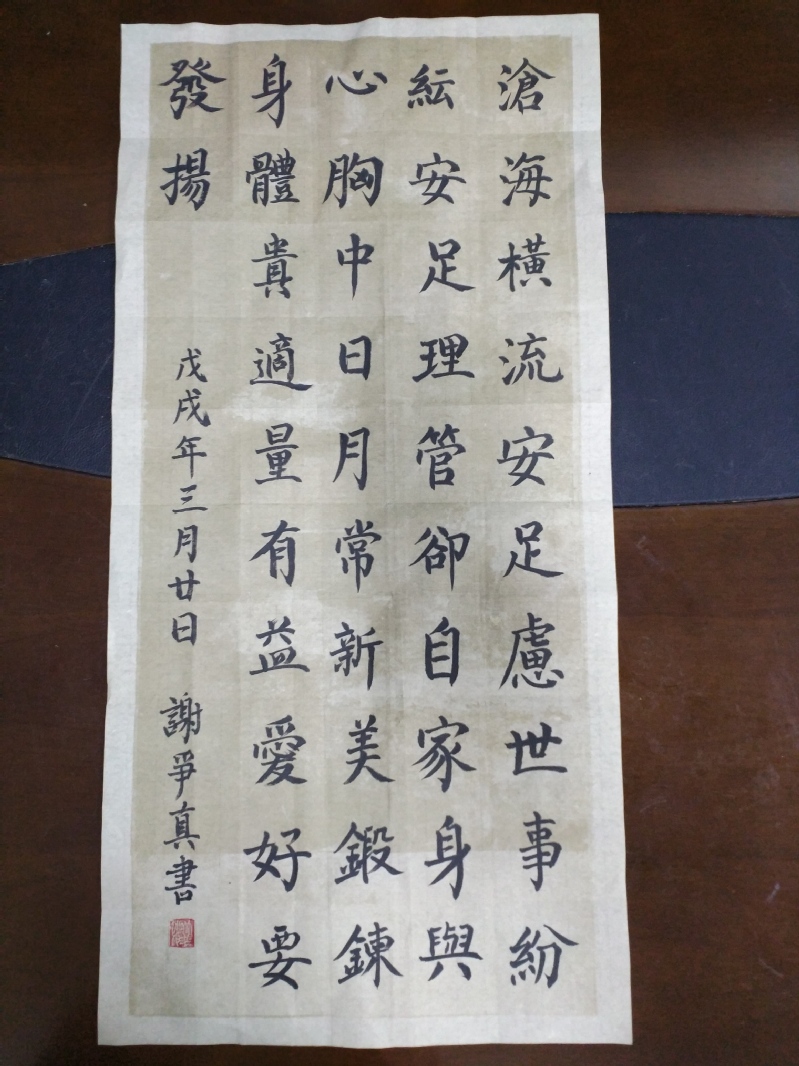 滄海橫流安足慮世事紛
紜安足理管卻自家身與
心胸中日月常新美鍛鍊
身體貴適量有益愛好要
發揚
戊戌年三月廿日 謝爭真書